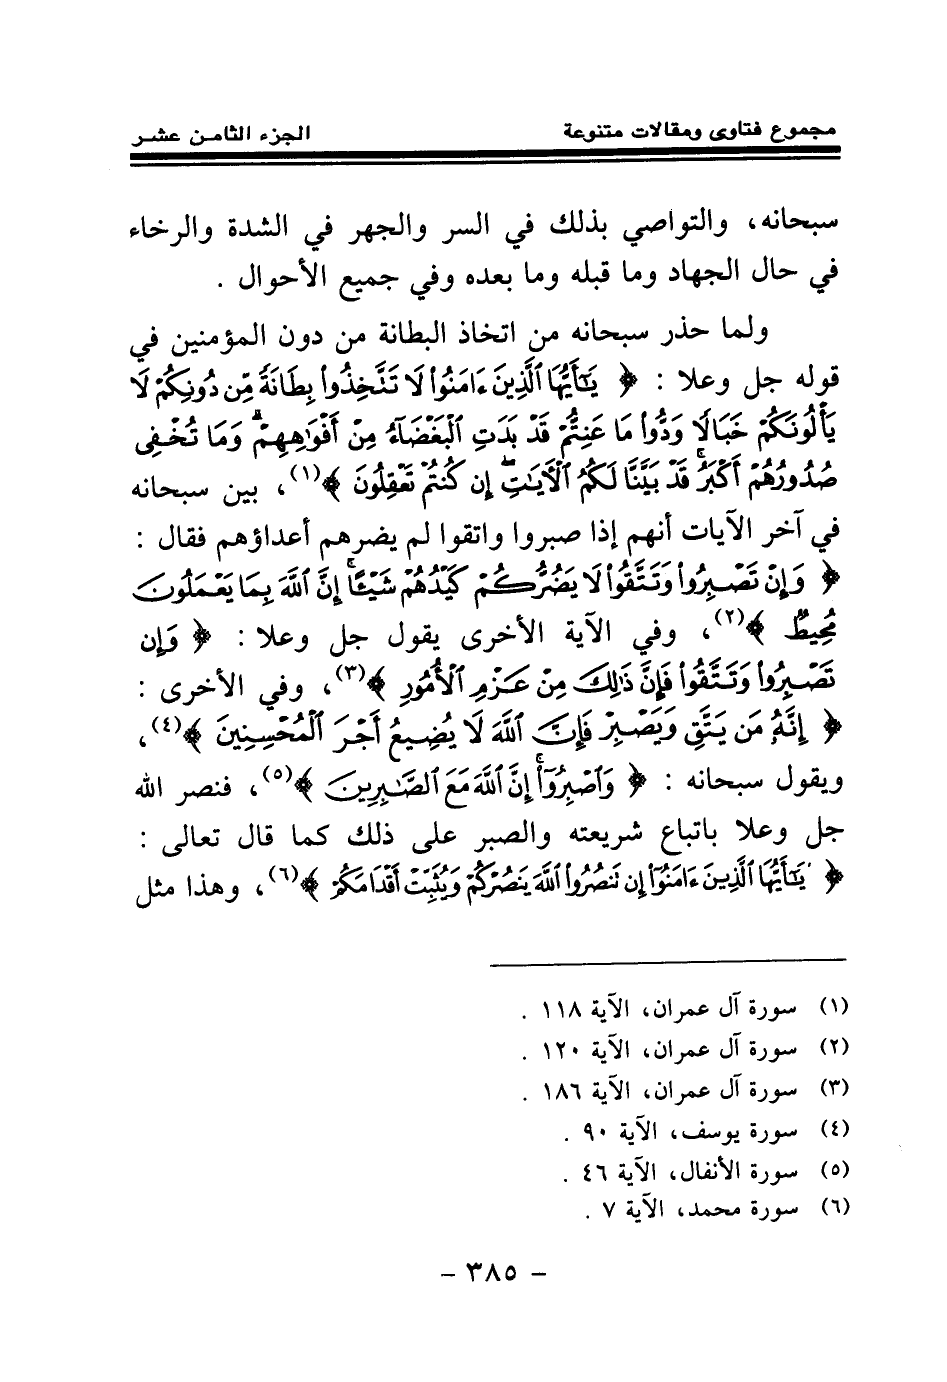 مجموع فتاوى ومقالات متنوعة الجزء الثامن عشر
سبحانه، والتواصي بذلك في السر والجهر في الشدة والرخاء
في حال الجهاد وما قبله وما بعده وفي جميع الأحوال .
ولما حذر سبحانه من اتخاذ البطانة من دون المؤمنين في
قوله جل وعلا : ﴿ يَٰٓأَيُّهَا ٱلَّذِينَ ءَامَنُوا۟ لَا تَتَّخِذُوا۟ بِطَانَةً مِّن دُونِكُمْ لَا
يَأْلُونَكُمْ خَبَالًا وَدُّوا۟ مَا عَنِتُّمْ قَدْ بَدَتِ ٱلْبَغْضَآءُ مِنْ أَفْوَٰهِهِمْ ۗ وَمَا تُخْفِى
صُدُورُهُمْ أَكْبَرُ ۚ قَدْ بَيَّنَّا لَكُمُ ٱلْءَايَٰتِ ۖ إِن كُنتُمْ تَعْقِلُونَ ﴾(١)، بين سبحانه
في آخر الآيات أنهم إذا صبروا واتقوا لم يضرهم أعداؤهم فقال :
﴿ وَإِنْ تَصْبِرُوا۟ وَتَتَّقُوا۟ لَا يَضُرُّكُمْ كَيْدُهُمْ شَيْـًٔا ۗ إِنَّ ٱللَّهَ بِمَا يَعْمَلُونَ
مُحِيطٌ ﴾(٢)، وفي الآية الأخرى يقول جل وعلا : ﴿ وَإِن
تَصْبِرُوا۟ وَتَتَّقُوا۟ فَإِنَّ ذَٰلِكَ مِنْ عَزْمِ ٱلْأُمُورِ ﴾(٣)، وفي الأخرى :
﴿ إِنَّهُۥ مَن يَتَّقِ وَيَصْبِرْ فَإِنَّ ٱللَّهَ لَا يُضِيعُ أَجْرَ ٱلْمُحْسِنِينَ ﴾(٤)،
ويقول سبحانه : ﴿ وَٱصْبِرُوٓا۟ ۚ إِنَّ ٱللَّهَ مَعَ ٱلصَّٰبِرِينَ ﴾(٥)، فنصر الله
جل وعلا باتباع شريعته والصبر على ذلك كما قال تعالى :
﴿ يَٰٓأَيُّهَا ٱلَّذِينَ ءَامَنُوٓا۟ إِن تَنصُرُوا۟ ٱللَّهَ يَنصُرْكُمْ وَيُثَبِّتْ أَقْدَامَكُمْ ﴾(٦)، وهذا مثل
(١) سورة آل عمران، الآية ١١٨ .
(٢) سورة آل عمران، الآية ١٢٠ .
(٣) سورة آل عمران، الآية ١٨٦ .
(٤) سورة يوسف، الآية ٩٠ .
(٥) سورة الأنفال، الآية ٤٦ .
(٦) سورة محمد، الآية ٧ .
- ٣٨٥ -